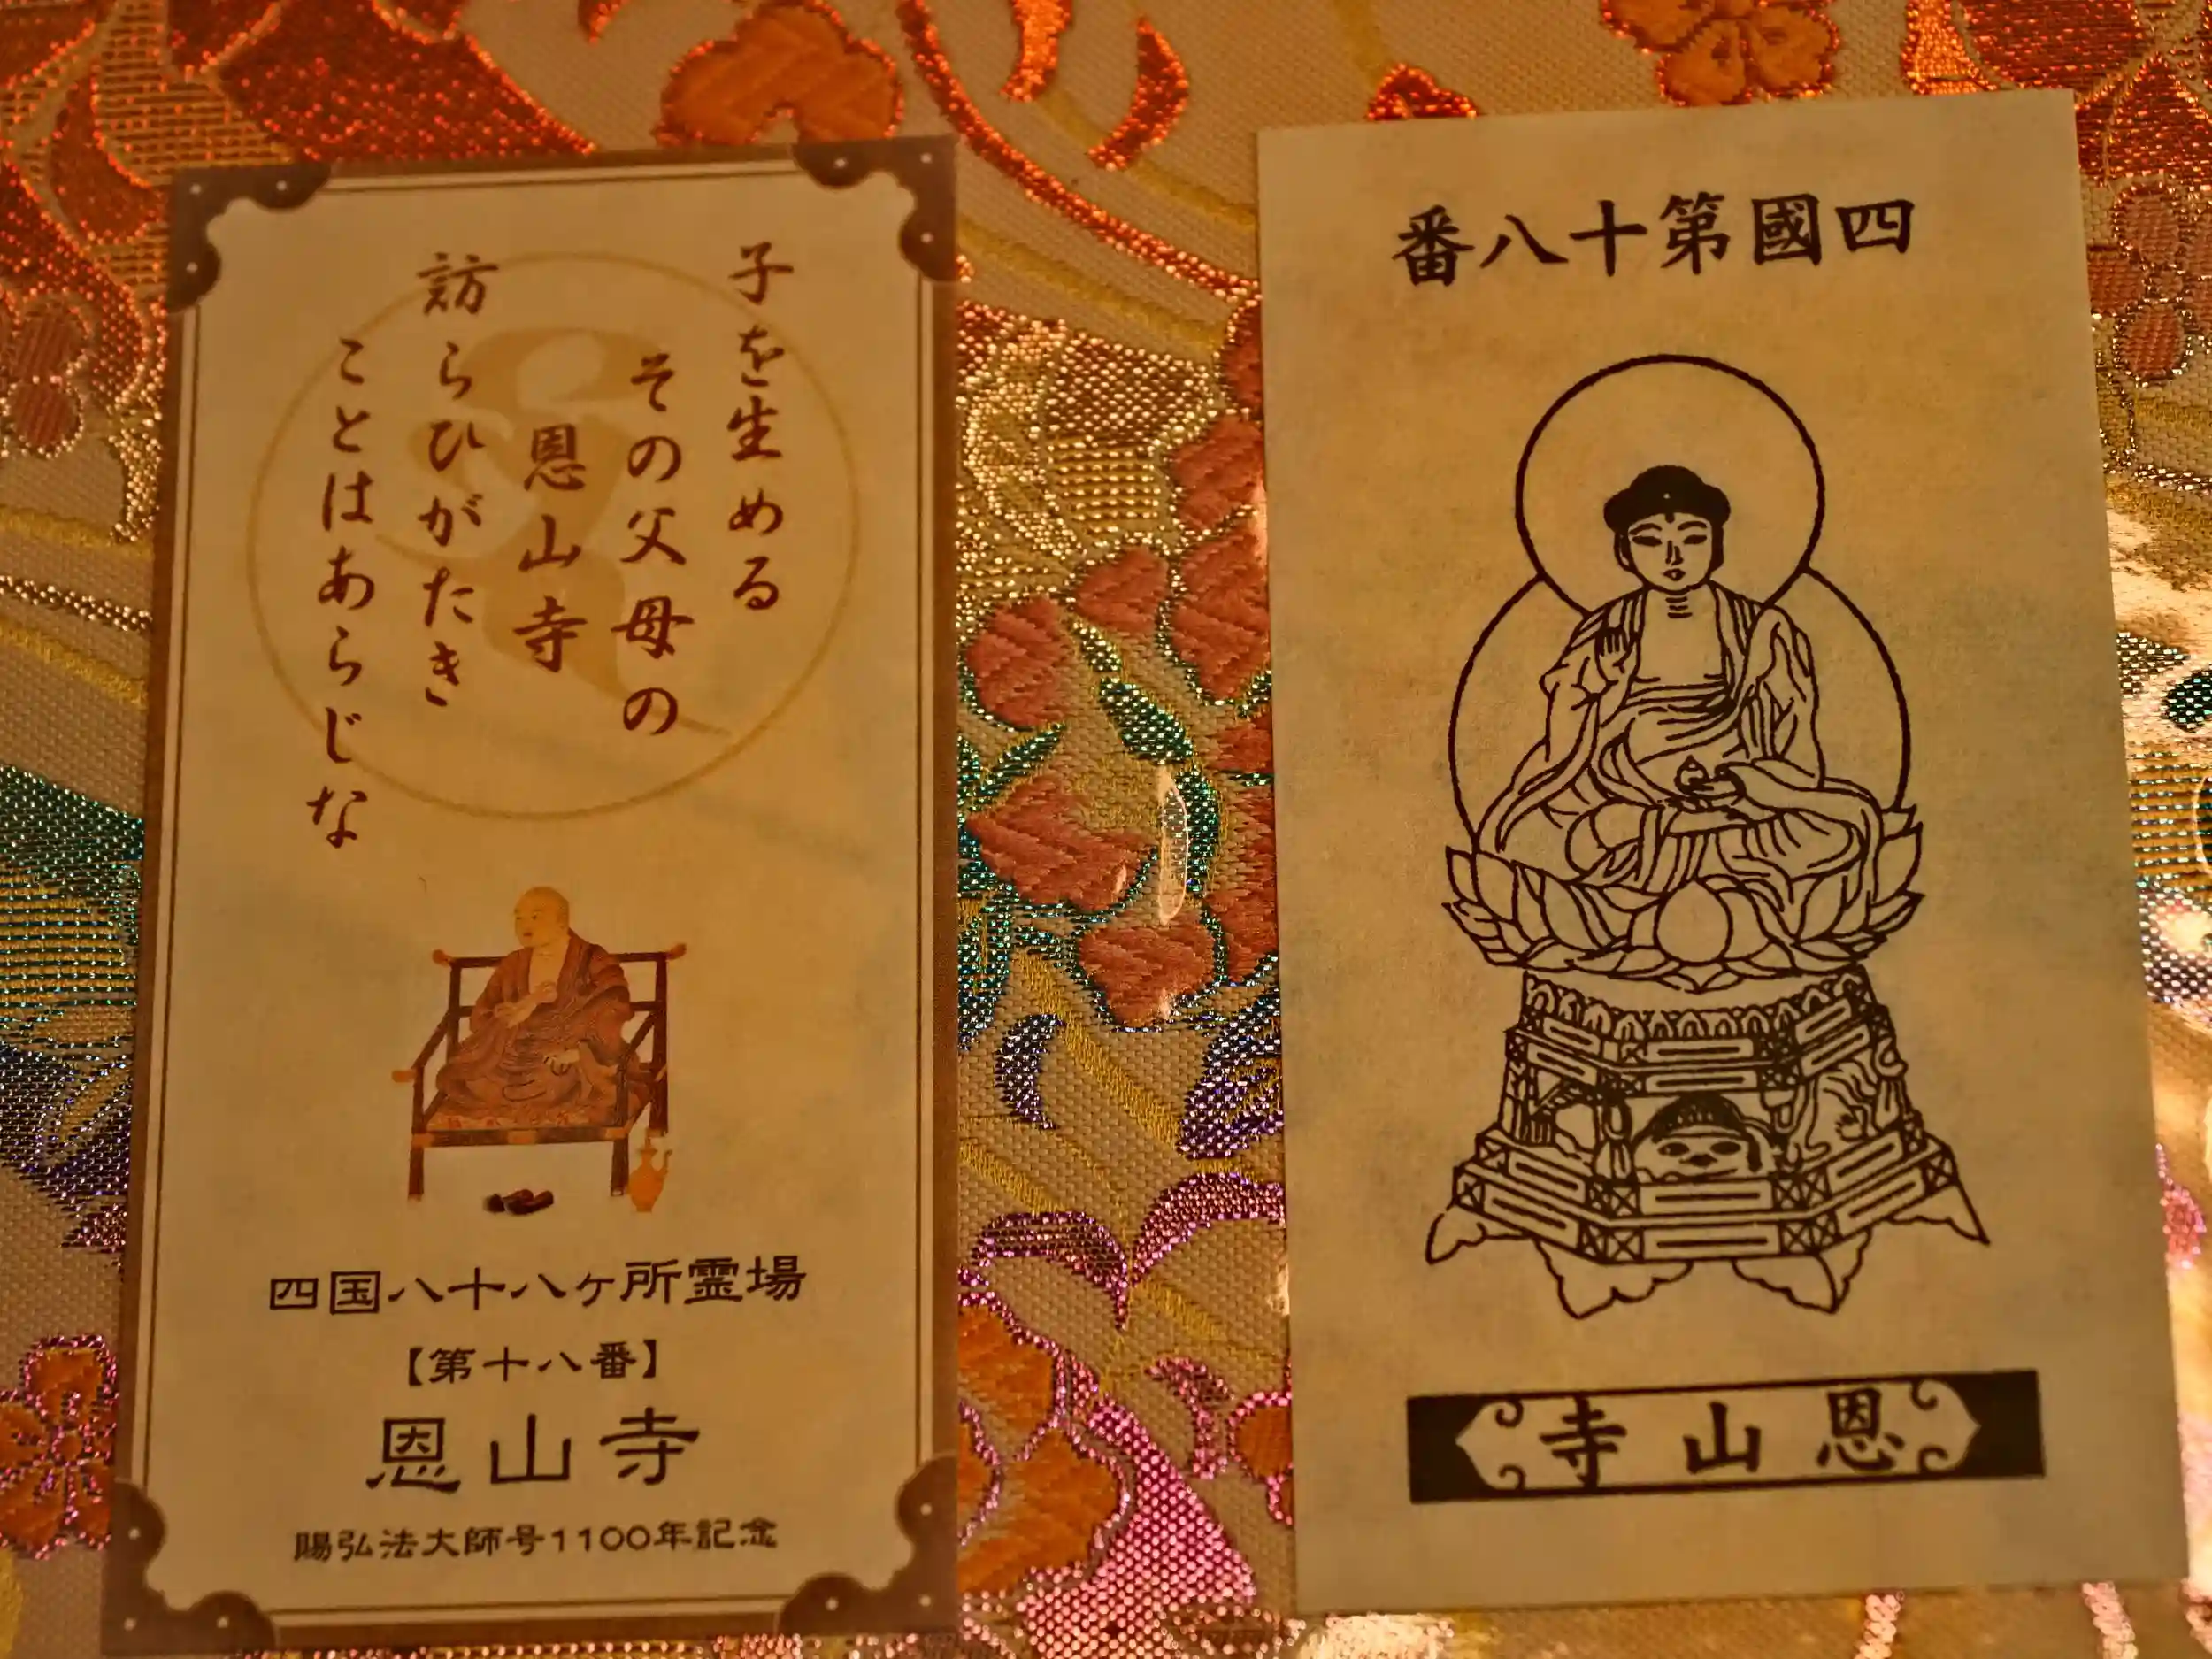 子を生める
その父母の
恩山寺
訪らひがたき
ことはあらじな
四国八十八ヶ所霊場
【第十八番】
恩山寺
賜弘法大師号1100年記念
四國第十八番
恩山寺